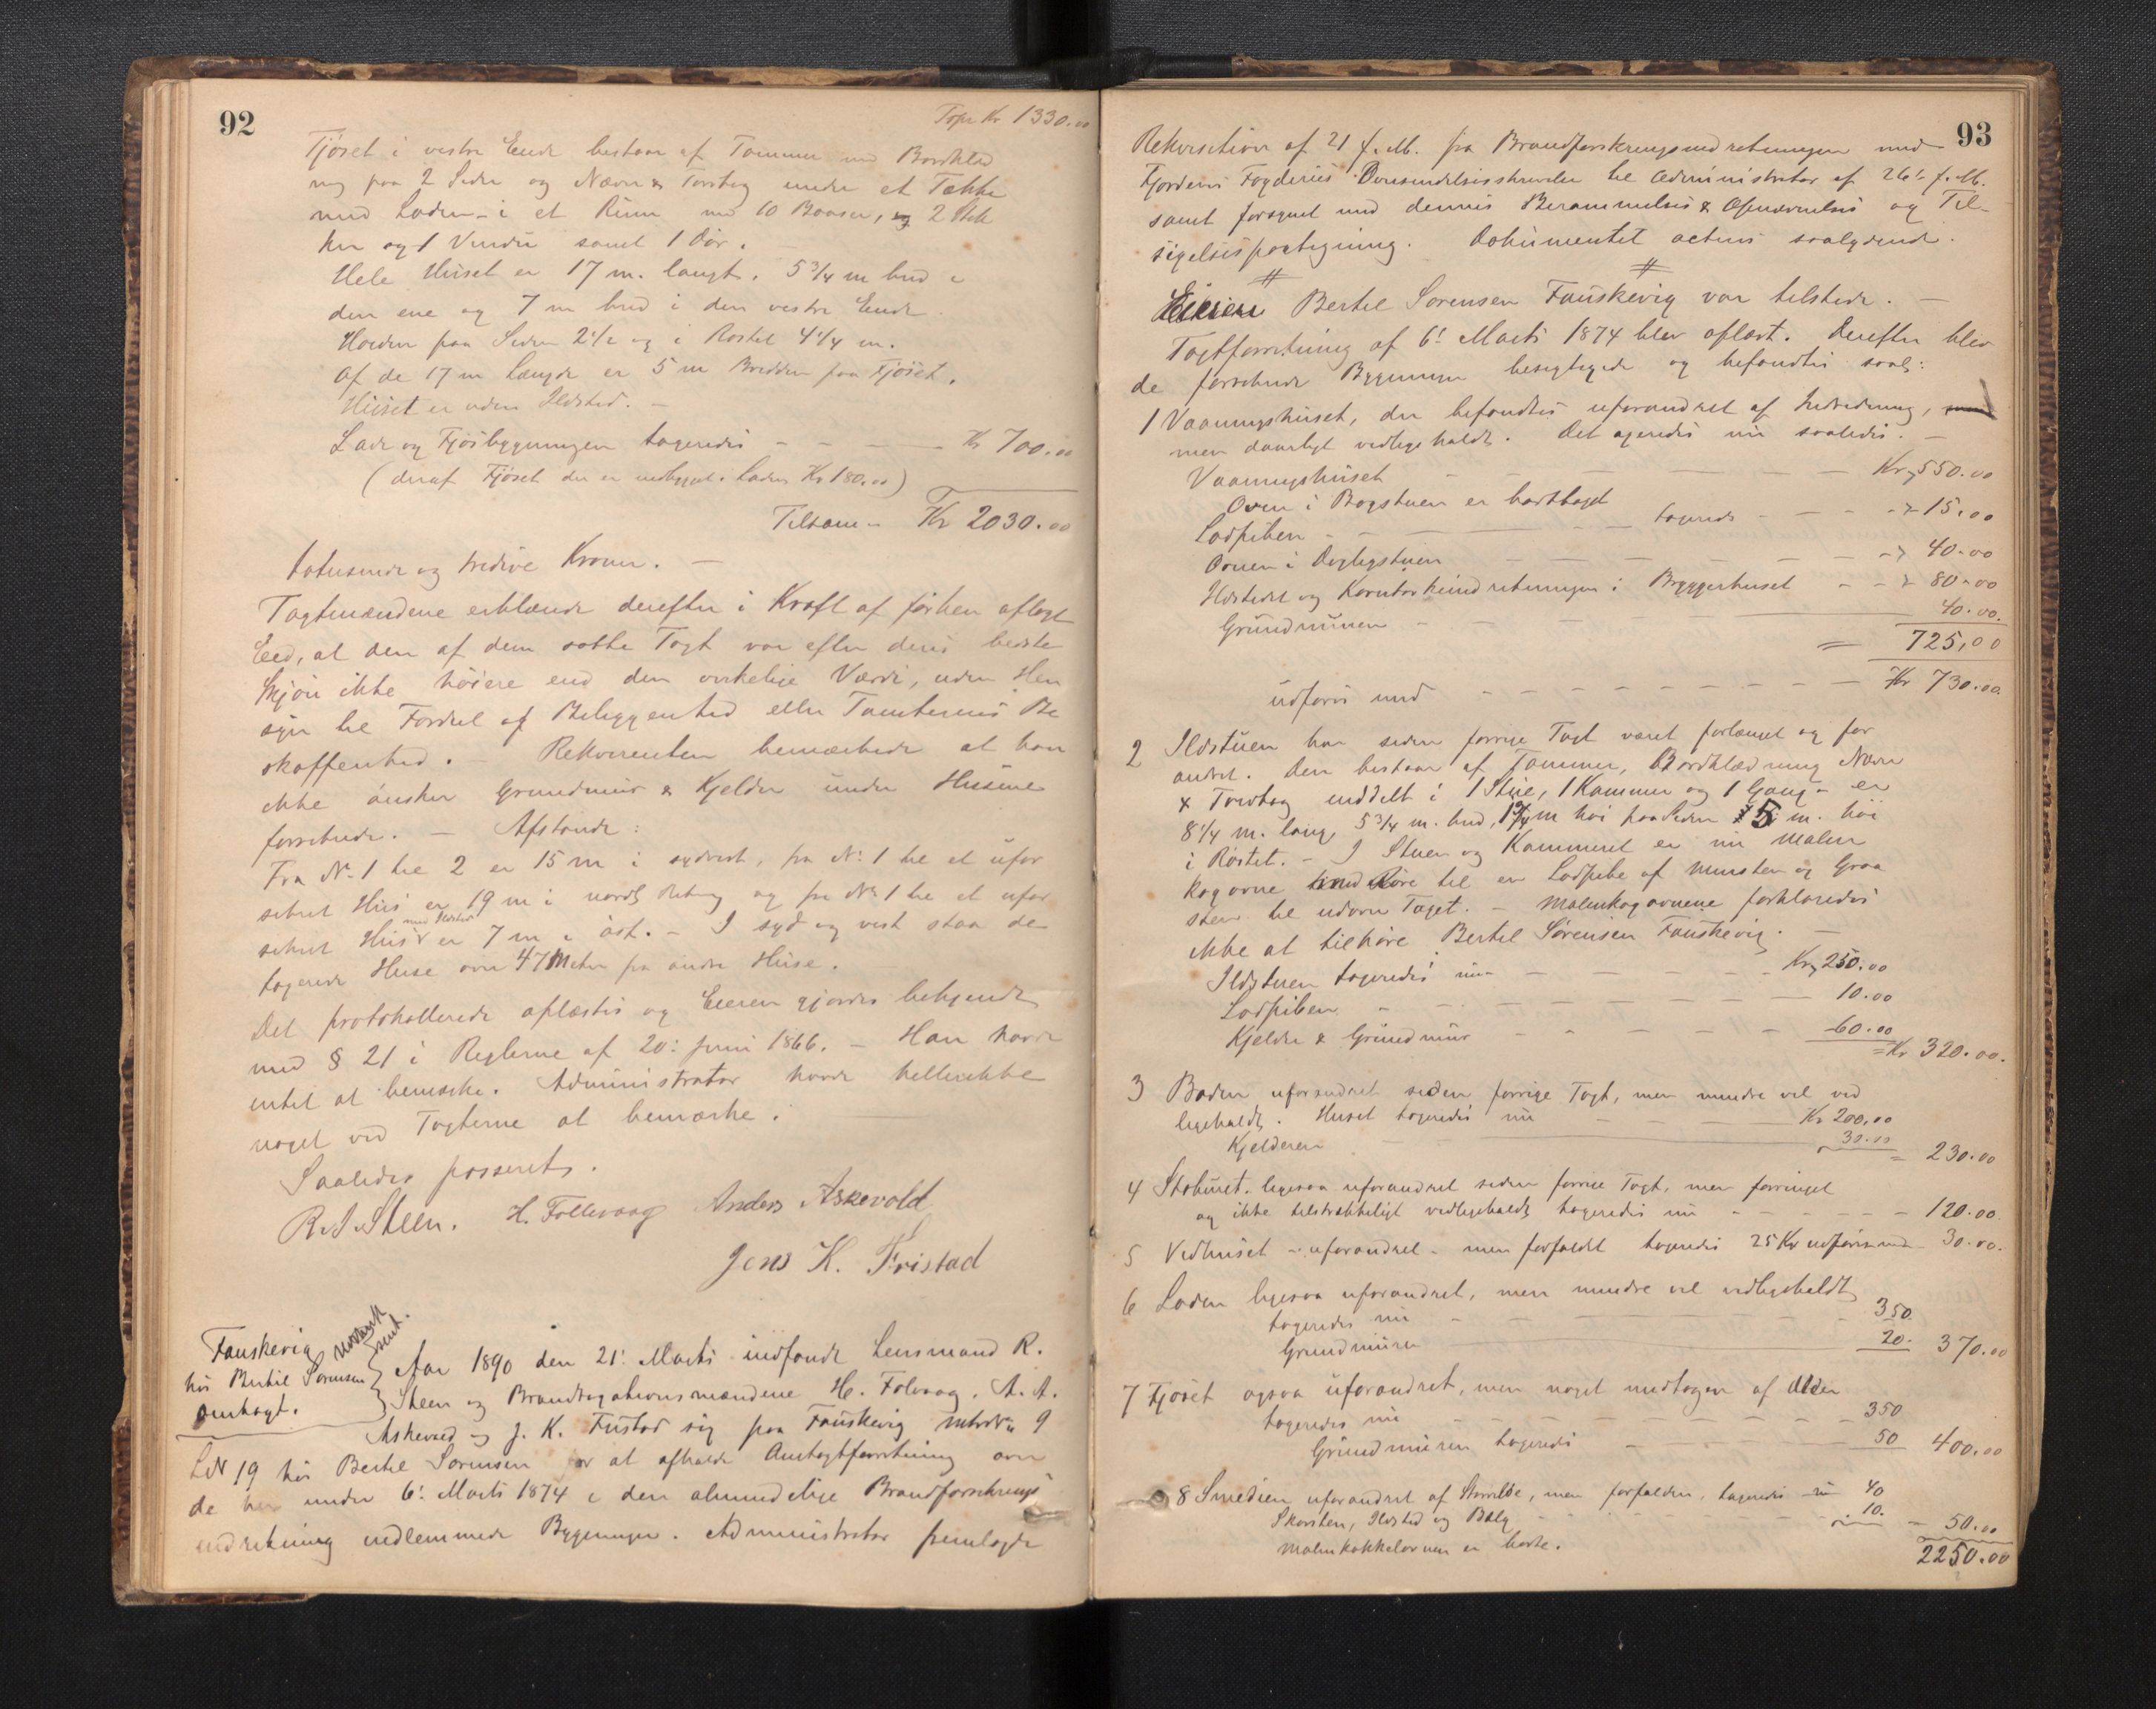 92
Topr Kr 1330.00
Fjöset i vestre Ende bestaar af Tømmer med Bordklæd
ning paa 2 Sider og Næver & Torvtag under et Tække
med Laden - i et Rum med 10 Baaser, og 2 Stk
ker og 1 Vindu samt 1 Dör.
Hele Huset er 17 m. langt. 5 3/4 m bred i
den ene og 7 m bred i den vestre Ende.
Høiden paa Siden 2 1/2 og i Røstet 4 1/4 m.
Af de 17 m Længde er 5 m Bredden paa Fjöset.
Huset er uden Ildsted. -
Lade og Fjösbygningen taxeredes - - - Kr 700.00
(deraf Fjöset der er indbygget i Laden Kr 180.00)
Tilsam - Kr 2030.00
totusinde og tredive Kroner. -
Taxtmændene erklærede derefter i Kraft af förhen aflagt
Eed, at den af dem satte Taxt var efter deres bedste
Skjön ikke höiere end den virkelige Værdi, uden Hen
syn til Fordel af Beliggenhed eller Tomternes Be
skaffenhed. - Rekvirenten bemærkede at han
ikke önsker Grundmur & Kjelder under Husene
forsikrede. - Afstande:
Fra No 1 til 2 er 15 m i sydvest, fra No 1 til et ufor
sikret Hus er 19 m i nordl Retning og fra No 1 til et ufor
sikret Hus med Ildsted er 7 m i öst. - I syd og vest staa de
taxerede Huse over 47 Meter fra andre Huse.
Det protokollerede oplæstes og Eieren gjordes bekjendt
med § 21 i Reglerne af 20: Juni 1866. - Han havde
intet at bemærke. Administrator havde hellerikke
noget ved Taxterne at bemærke.
Saaledes passeret.
R. Steen. H. Follevaag Anders Askevold
Jens K. Fristad
Fauskevig
hos Bertil Sørensen
omtaxt.
Aar 1890 den 21: Marts indfandt Lensmand R.
Steen og Brandtaxationsmændene H. Folevaag, A. A.
Askevold og J. K. Fristad sig paa Fauskevig Matr No 9
LN 19 hos Bertil Sørensen for at afholde Omtaxtforretning over
de her under 6: Marts 1874 i den almindelige Brandforsikrings
indretning indlemmede Bygninger. Administrator fremlagde
93
Rekvisition af 21 f. M. fra Brandforsikringsindretningen med
Fjordenes Fogderies Oversendelsesskrivelse til Administrator af 26 f. M.
samt forsynet med dennes Berammelses & Opnævnelses og Til-
sigelsespaategning. Dokumentet acteres saalydende.
Eieren Bertil Sørensen Fauskevig var tilstede. -
Taxtforretning af 6: Marts 1874 blev oplæst. Derefter blev
de forsikrede Bygninger besigtigede og befandtes saal:
1 Vaaningshuset, der befandtes uforandret af Indredning,
men daarligt vedligeholdt. Det taxeredes nu saaledes. -
Vaaningshuset - - - Kr 550.00
Oven i Bagstuen er borttaget
Ladpiben - - - taxerede - - - 15.00
Ovnen i Daglegstuen - - - 40.00
Ildstedet og Korntørkeindretningen i Bryggerhuset - - 80.00
Grundmuren - - - 40.00.
= 725,00
udføres med - - - Kr 730.00
2 Ildstuen har siden forrige Taxt været forlænget og for
andret. Den bestaar af Tømmer, Bordklædning Næver
& Torvtag inddelt i 1 Stue, 1 Kammer og 1 Gang - er
8 1/4 m. lang, 5 3/4 m. bred, m høi paa Siden 5 m. höi
i Røstet. - I Stuen og Kammeret er nu Malm
kogovne med Röre til en Ladpibe af Mursten og Graa
sten til udover Taget. - Malmkogovnene forklaredes
ikke at tilhöre Bertil Sørensen Fauskevig. -
Ildstuen taxeredes nu - - - Kr 250.00
Ladpiben - - - 10.00
Kjelder & Grundmur - - - 60.00
= Kr 320.00.
3 Boden uforandret siden forrige Taxt, men mindre vel ved
ligeholdt. Huset taxeredes nu - - Kr 200,00
Kjelderen - - - 30.00
= 230.00
4 Staburet. ligesaa uforandret siden forrige Taxt, men forringet
og ikke tilstrækkeligt vedligeholdt taxeredes nu - - - 120.00
5 Vedhuset - uforandret - men forfaldt taxeredes 25 Kr udføres med 30.00.
6 Laden ligesaa uforandret, men mindre vel vedligeholdt
taxeredes nu - - - 350
Grundmuren - - - 20. 370.00
7 Fjöset ogsaa uforandret, men noget medtagen af Alder
taxeredes nu - - - 350
Grundmuren taxeredes - - - 50 400.00
8 Smedien uforandret af Størrelse, men forfalden, taxeredes nu 40
Skorsten, Ildsted og Bælg - - - 10. - 50.00
Malmkakkelovnen er borte.
2250.00